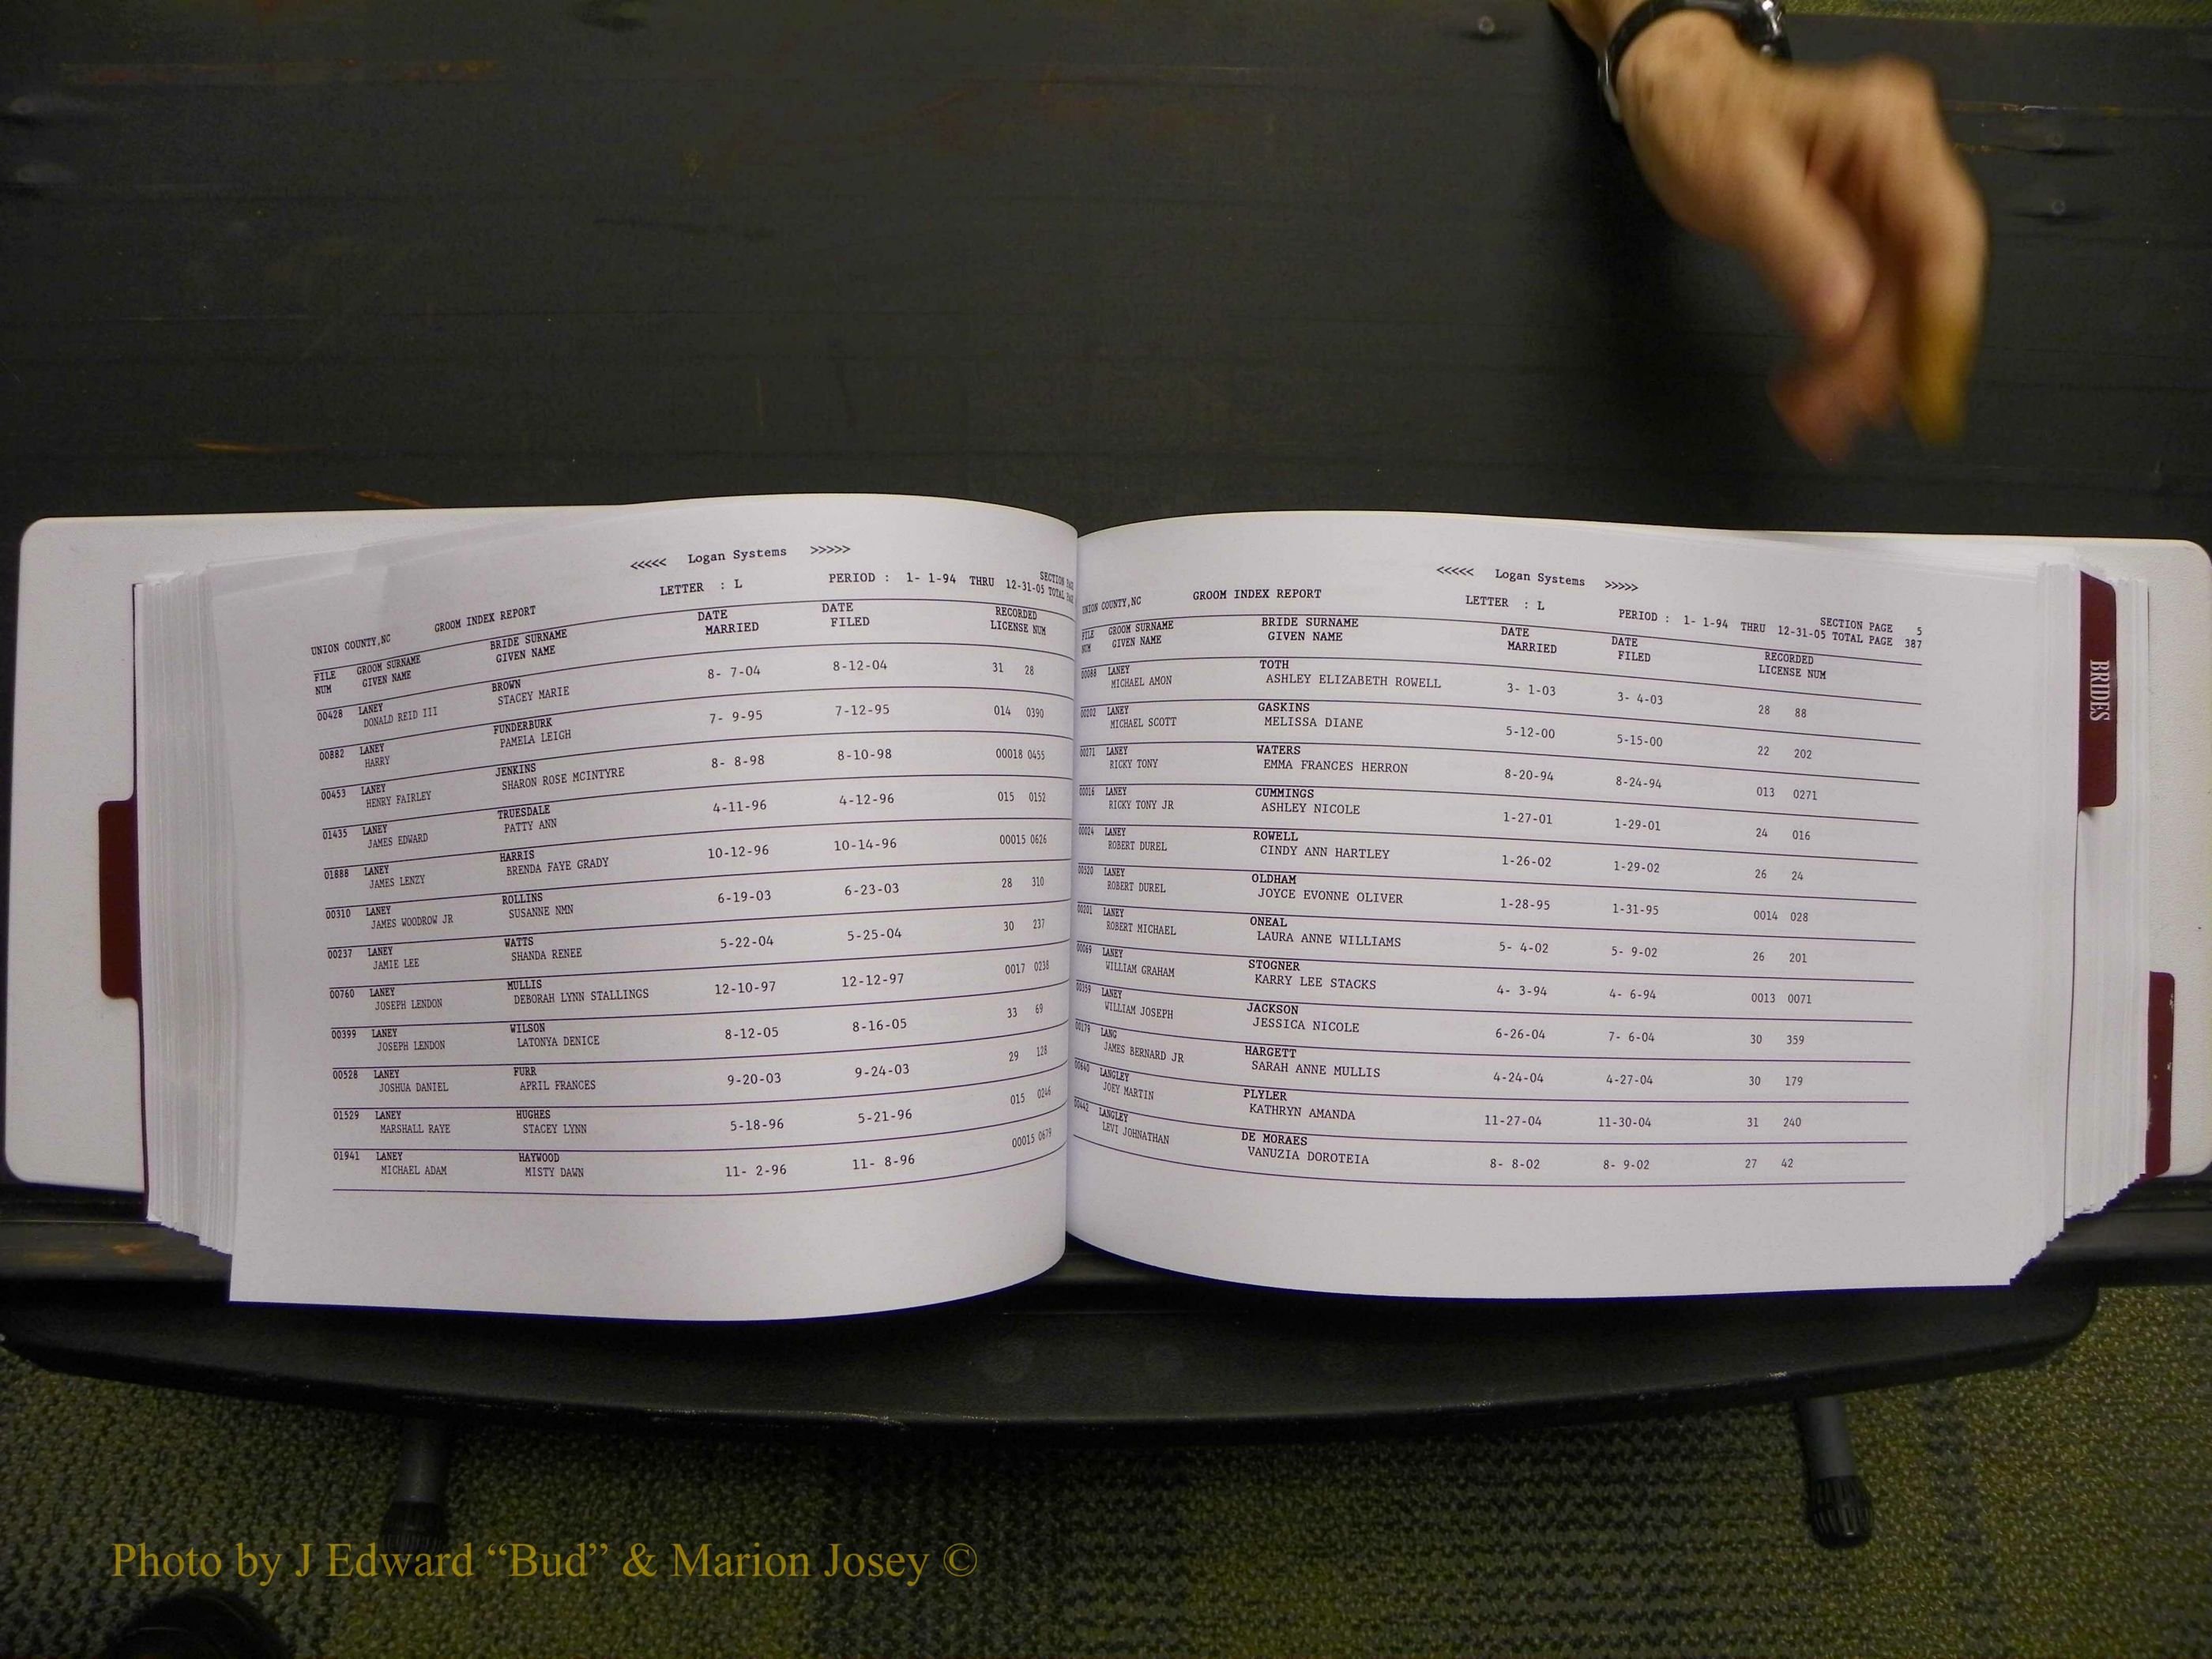 <<<<< Logan Systems >>>>>
LETTER : L PERIOD : 1- 1-94 THRU 12-31-05 TOTAL
SECTION
UNION COUNTY,NC GROOM INDEX REPORT
FILE GROOM SURNAME BRIDE SURNAME DATE DATE RECORDED
NUM GIVEN NAME GIVEN NAME MARRIED FILED LICENSE NUM
00428 LANEY BROWN 8- 7-04 8-12-04 31 28
DONALD REID III STACEY MARIE
00882 LANEY FUNDERBURK 7- 9-95 7-12-95 014 0390
HARRY PAMELA LEIGH
00453 LANEY JENKINS 8- 8-98 8-10-98 00018 0455
HENRY FAIRLEY SHARON ROSE MCINTYRE
01435 LANEY TRUESDALE 4-11-96 4-12-96 015 0152
JAMES EDWARD PATTY ANN
01888 LANEY HARRIS 10-12-96 10-14-96 00015 0626
JAMES LENZY BRENDA FAYE GRADY
00310 LANEY ROLLINS 6-19-03 6-23-03 28 310
JAMES WOODROW JR SUSANNE NMN
00237 LANEY WATTS 5-22-04 5-25-04 30 237
JAMIE LEE SHANDA RENEE
00760 LANEY MULLIS 12-10-97 12-12-97 0017 0238
JOSEPH LENDON DEBORAH LYNN STALLINGS
00399 LANEY WILSON 8-12-05 8-16-05 33 69
JOSEPH LENDON LATONYA DENICE
00528 LANEY FURR 9-20-03 9-24-03 29 128
JOSHUA DANIEL APRIL FRANCES
01529 LANEY HUGHES 5-18-96 5-21-96 015 0246
MARSHALL RAYE STACEY LYNN
01941 LANEY HAYWOOD 11- 2-96 11- 8-96 00015 0679
MICHAEL ADAM MISTY DAWN
<<<<< Logan Systems >>>>>
UNION COUNTY,NC GROOM INDEX REPORT LETTER : L SECTION PAGE 5
PERIOD : 1- 1-94 THRU 12-31-05 TOTAL PAGE 387
FILE GROOM SURNAME BRIDE SURNAME DATE DATE RECORDED
NUM GIVEN NAME GIVEN NAME MARRIED FILED LICENSE NUM
00088 LANEY TOTH 3- 1-03 3- 4-03 28 88
MICHAEL AMON ASHLEY ELIZABETH ROWELL
00202 LANEY GASKINS 5-12-00 5-15-00 22 202
MICHAEL SCOTT MELISSA DIANE
00271 LANEY WATERS 8-20-94 8-24-94 013 0271
RICKY TONY EMMA FRANCES HERRON
00016 LANEY CUMMINGS 1-27-01 1-29-01 24 016
RICKY TONY JR ASHLEY NICOLE
00024 LANEY ROWELL 1-26-02 1-29-02 26 24
ROBERT DUREL CINDY ANN HARTLEY
00520 LANEY OLDHAM 1-28-95 1-31-95 0014 028
ROBERT DUREL JOYCE EVONNE OLIVER
00201 LANEY ONEAL 5- 4-02 5- 9-02 26 201
ROBERT MICHAEL LAURA ANNE WILLIAMS
00069 LANEY STOGNER 4- 3-94 4- 6-94 0013 0071
WILLIAM GRAHAM KARRY LEE STACKS
00359 LANEY JACKSON 6-26-04 7- 6-04 30 359
WILLIAM JOSEPH JESSICA NICOLE
00179 LANG HARGETT 4-24-04 4-27-04 30 179
JAMES BERNARD JR SARAH ANNE MULLIS
00640 LANGLEY PLYLER 11-27-04 11-30-04 31 240
JOEY MARTIN KATHRYN AMANDA
00442 LANGLEY DE MORAES 8- 8-02 8- 9-02 27 42
LEVI JOHNATHAN VANUZIA DOROTEIA
BRIDES
Photo by J Edward “Bud” & Marion Josey ©